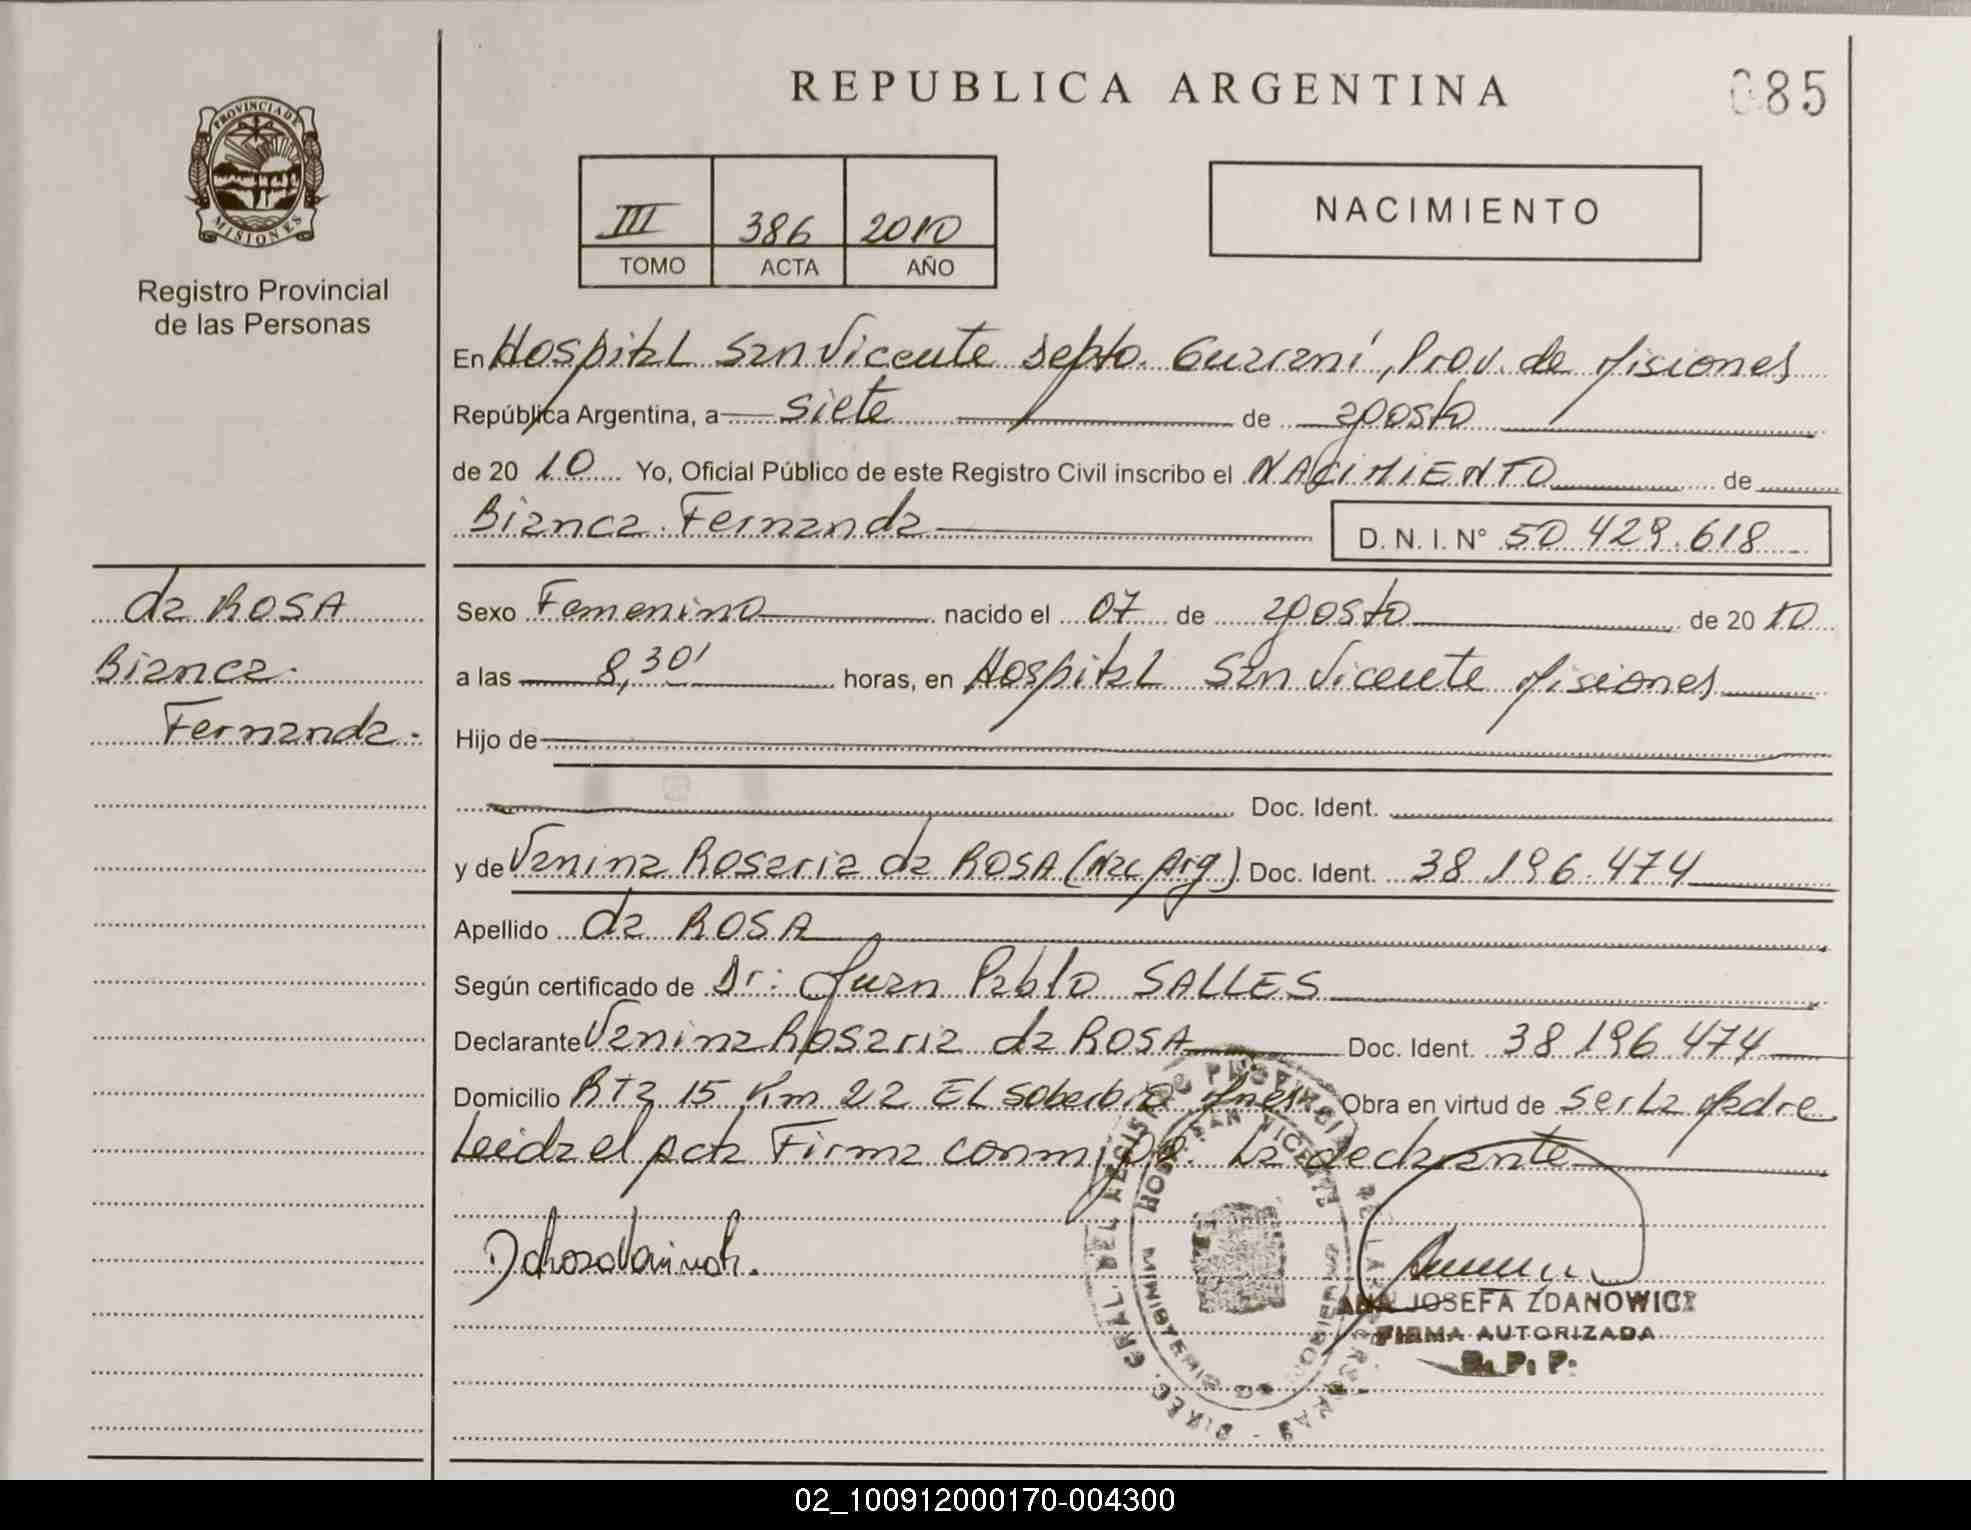 REPUBLICA ARGENTINA
085
PROVINCIA DE MISIONES
Registro Provincial
de las Personas
III 386 2010
TOMO ACTA AÑO
NACIMIENTO
En Hospital San Vicente Depto. Guaraní, Prov. de Misiones
República Argentina, a siete de agosto
de 20 10 Yo, Oficial Público de este Registro Civil inscribo el NACIMIENTO de
Bianca Fernanda D. N. I. N° 50 429.618
da ROSA
Bianca
Fernanda.
Sexo Femenino nacido el 07 de agosto de 20 10
a las 8,30' horas, en Hospital San Vicente Misiones
Hijo de
Doc. Ident.
y de Vanina Rosaria da ROSA (Nac Arg) Doc. Ident. 38.196.474
Apellido da ROSA
Según certificado de Dr: Juan Pablo SALLES
Declarante Vanina Rosaria da ROSA Doc. Ident. 38 196 474
Domicilio Rta 15 Km 22 El Soberbio Mnes. Obra en virtud de ser la Madre
Leida el acta Firma conmigo. La declarante
DIREC. GRAL. DEL REGISTRO PROVINCIAL DE LAS PERSONAS
HOSP. SAN VICENTE
MINISTERIO DE GOBIERNO
ANA JOSEFA ZDANOWICZ
FIRMA AUTORIZADA
R. P. P.
02_100912000170-004300